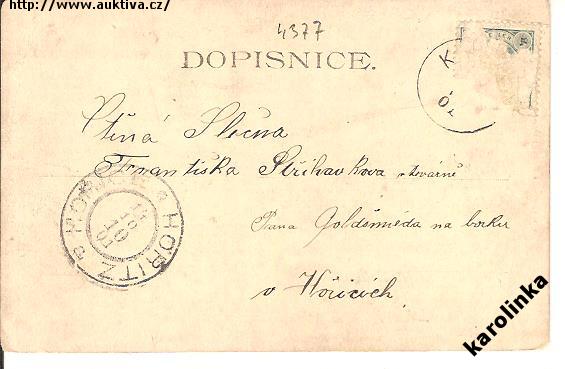 http://www.auktiva.cz/
4377
DOPISNICE.
Ctěná Slečna
Františka Střihavkova v továrně
Pana Goldšmieda na borku
v Hořicích.
HOŘICE * HORITZ
karolinka